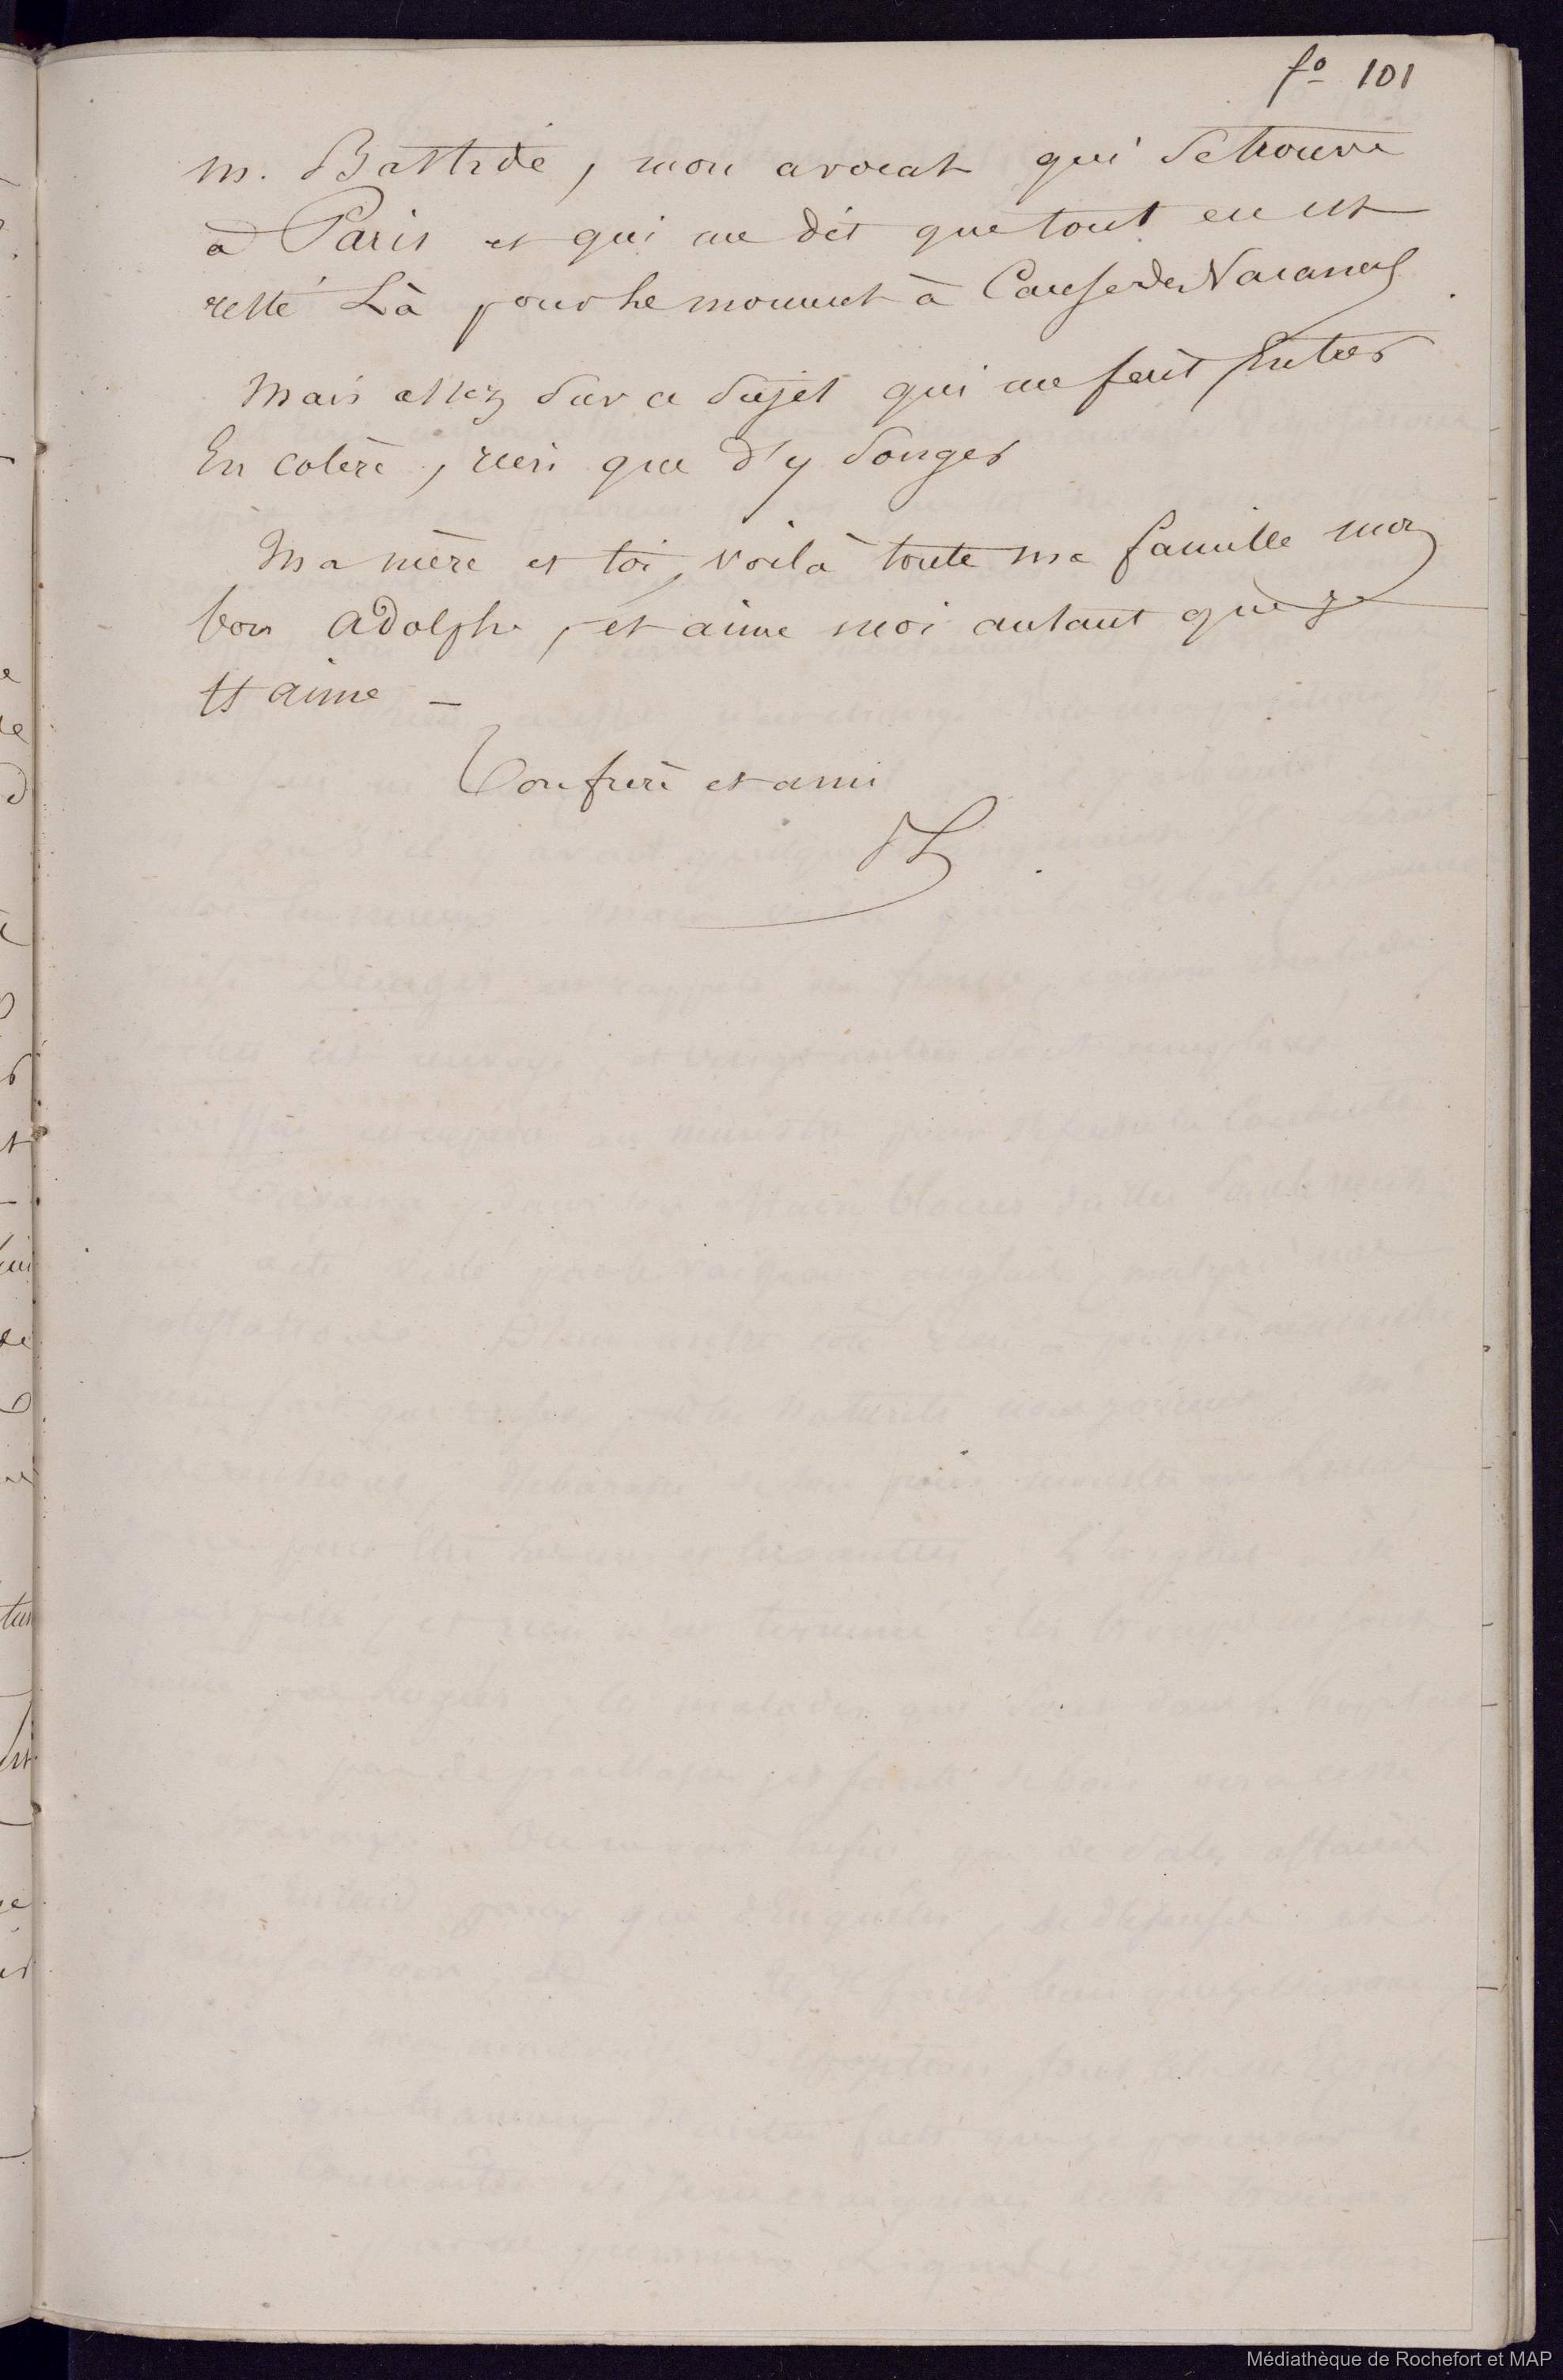 fo 101
M. Bastide, mon avocat qui se trouve
à Paris et qui me dit que tout en est
resté là pour le moment à Cause des Vacances
Mais assez sur ce sujet qui me fait Entrer
En colère, rien que d'y songer
Ma mère et toi, voilà toute ma famille mon
bon adolphe, et aime moi autant que je
t'aime –
Ton frère et ami
Médiathèque de Rochefort et MAP